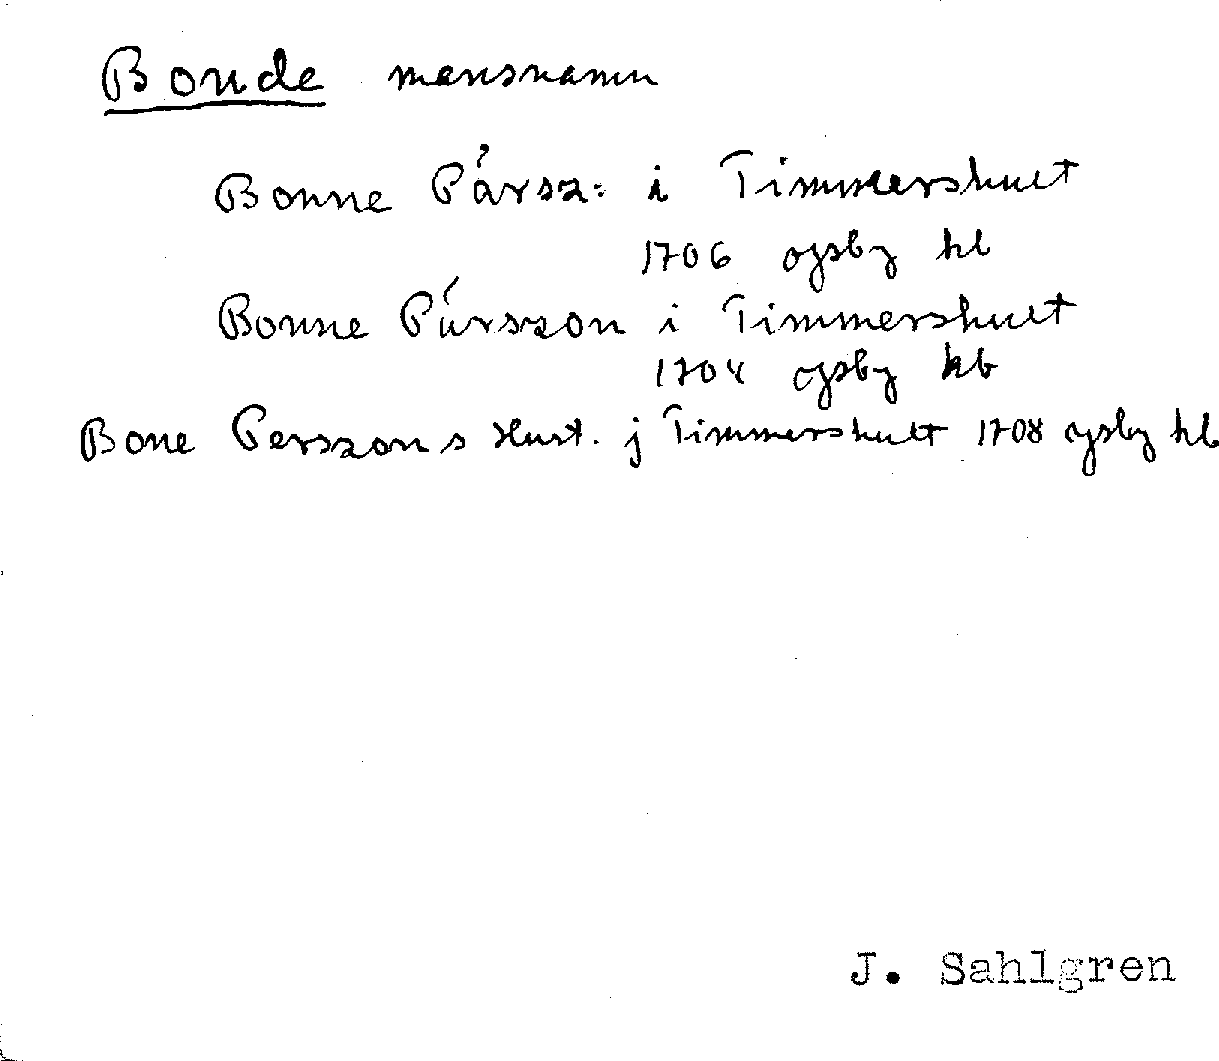 Bonde mansnamn
Bonne Pársz: i Timmershult
1706 ögsby kb
Bonne Pársson i Timmershult
1704 ögsby kb
Bone Perszons Hust. j Timmershult 1708 ögsby kb
J. Sahlgren